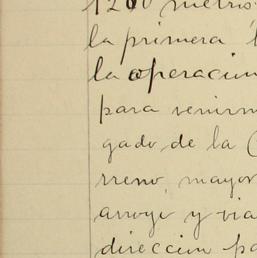 1200 metros
la primera
la operacion
para venirm
gado de la
rreno, mayor
arroyo y via
direccion pa